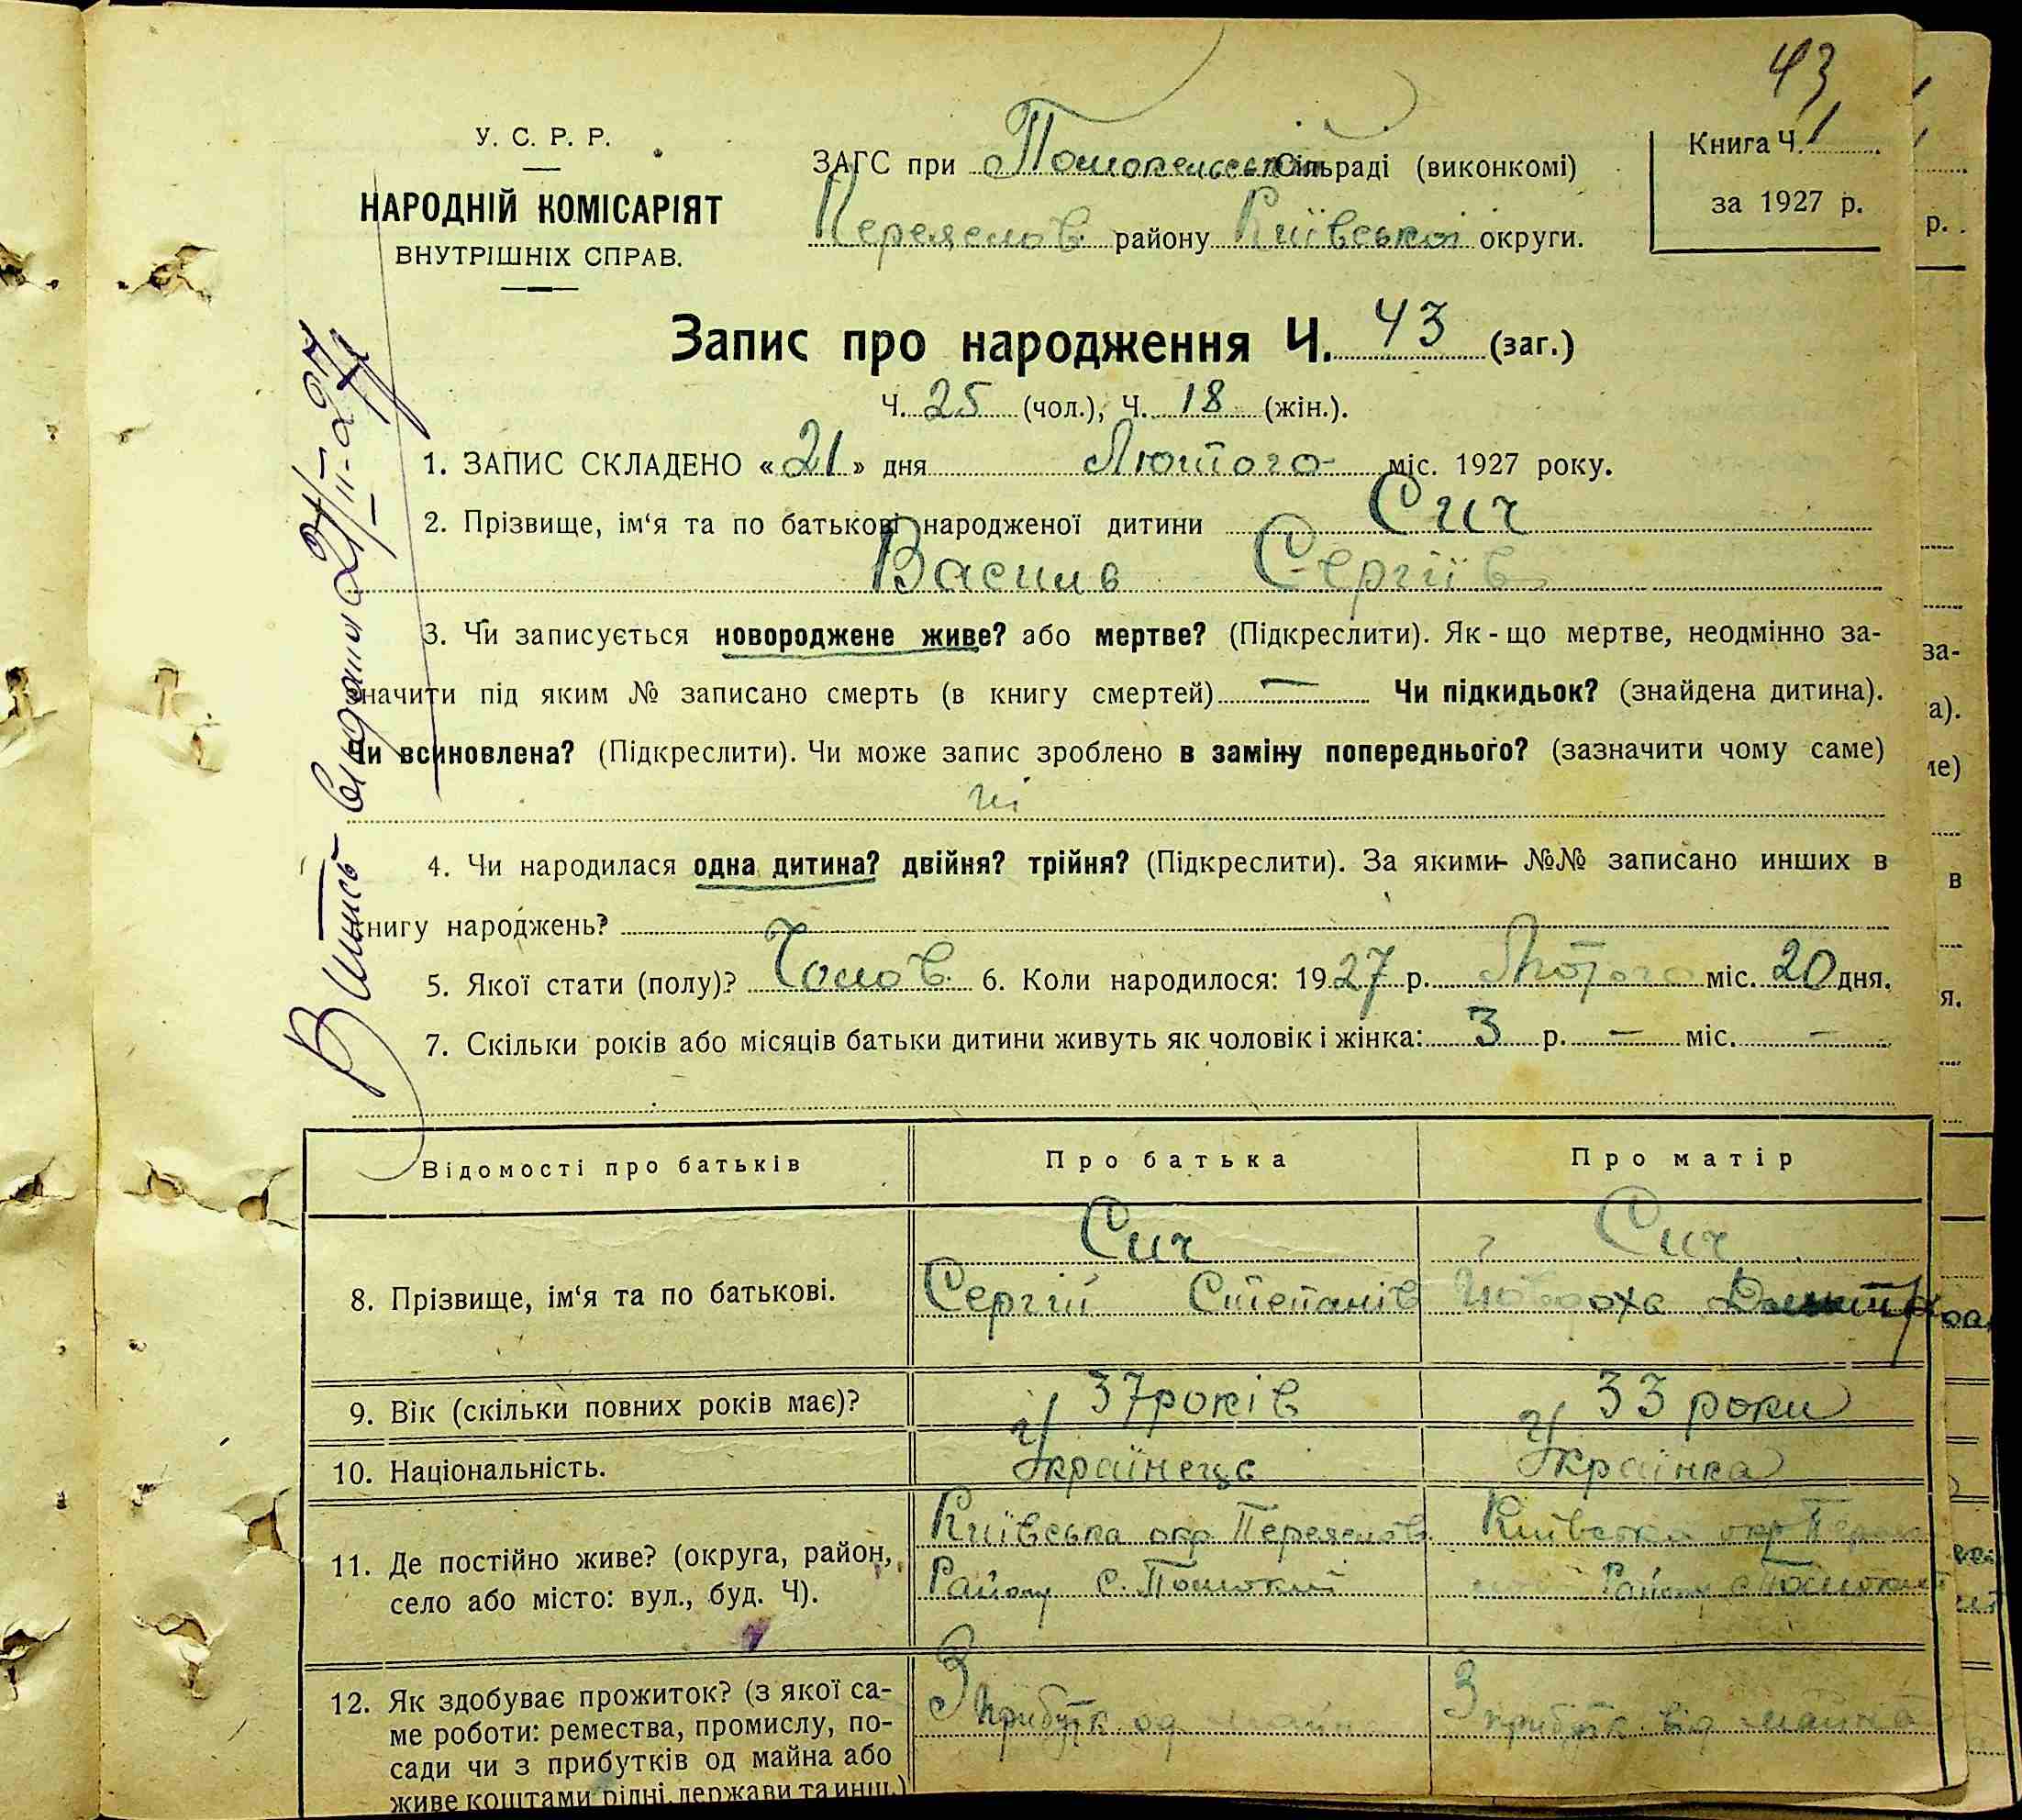 43
У. С. Р. Р.
НАРОДНІЙ КОМІСАРІЯТ
ВНУТРІШНІХ СПРАВ.
ЗАГС при Помокельській Сільраді (виконкомі)
Переяслов району Київської округи.
Книга Ч. 1
за 1927 р.
Запис про народження Ч. 43 (заг.)
Ч. 25 (чол.), Ч. 18 (жін.).
1. ЗАПИС СКЛАДЕНО «21» дня Лютого міс. 1927 року.
2. Прізвище, ім‘я та по батькові народженої дитини Сич
Василь Сергіїв
3. Чи записується новороджене живе? або мертве? (Підкреслити). Як-що мертве, неодмінно за-
значити під яким № записано смерть (в книгу смертей) — Чи підкидьок? (знайдена дитина).
Чи всиновлена? (Підкреслити). Чи може запис зроблено в заміну попереднього? (зазначити чому саме)
ні
4. Чи народилася одна дитина? двійня? трійня? (Підкреслити). За якими №№ записано инших в
книгу народжень?
5. Якої стати (полу)? Чолов. 6. Коли народилося: 1927 р. Лютого міс. 20 дня.
7. Скільки років або місяців батьки дитини живуть як чоловік і жінка: 3 р. — міс. —
Випись видана
Відомості про батьків Про батька Про матір
8. Прізвище, ім‘я та по батькові. Сич Сич
Сергій Степанів
9. Вік (скільки повних років має)? 37 років 33 роки
10. Національність. Українець Українка
11. Де постійно живе? (округа, район, село або місто: вул., буд. Ч).
Київська окр. Переяслов. Київська окр.
Району с. Помокли Району с. Помокли
12. Як здобуває прожиток? (з якої са-
ме роботи: ремества, промислу, по-
сади чи з прибутків од майна або
живе коштами рідні, держави та инш.)
З прибутк. од майна З прибутк. від майна